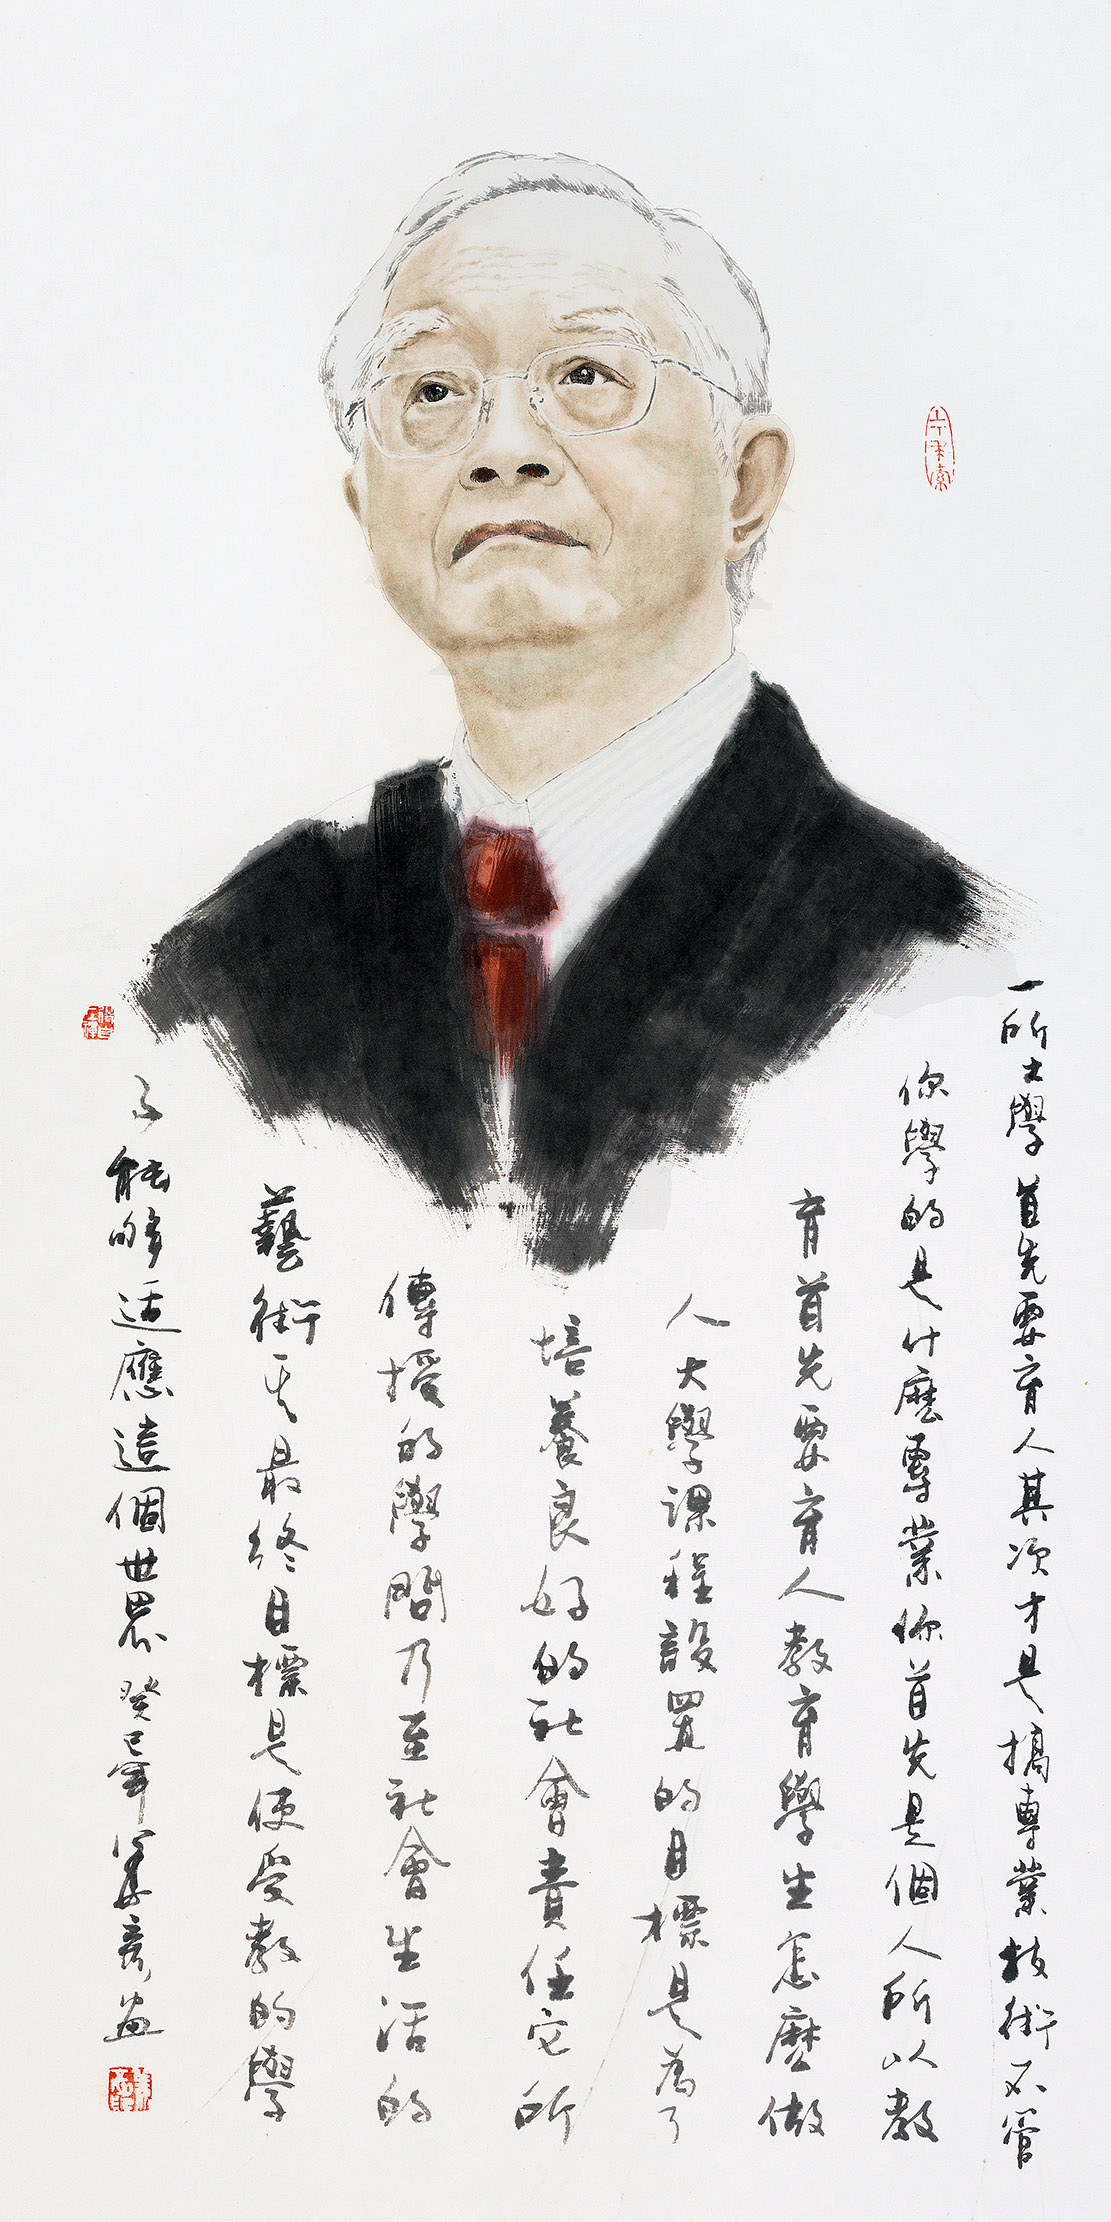 一所大學首先要育人其次才是搞專業技術不管
你學的是什麽專業你首先是個人所以教
育首先要育人教育學生怎麽做
人大學課程設置的目標是為了
培養良好的社會責任它所
傳授的學問乃至社會生活的
藝術其最終目標是使受教的學
子能够适應這個世界癸巳年姜畫